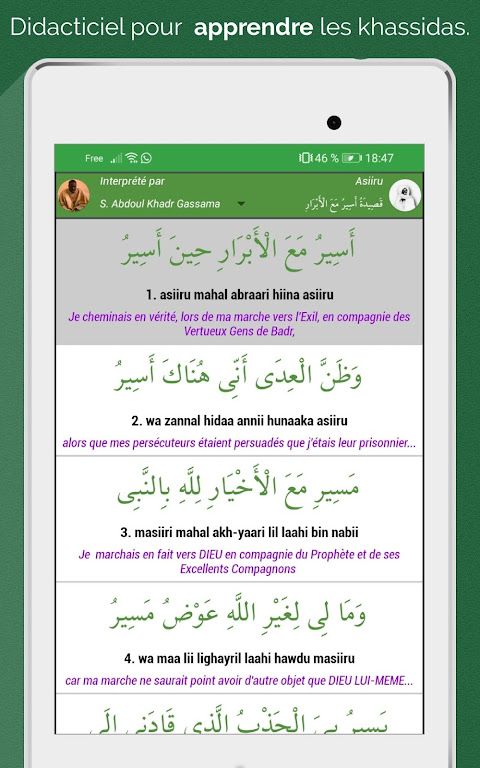 Didacticiel pour apprendre les khassidas.
Free 46 % 18:47
Interprété par Asiiru
S. Abdoul Khadr Gassama قَصِيدَةُ أَسِيرُ مَعَ الْأَبْرَارِ
أَسِيرُ مَعَ الْأَبْرَارِ حِينَ أَسِيرُ
1. asiiru mahal abraari hiina asiiru
Je cheminais en vérité, lors de ma marche vers l'Exil, en compagnie des
Vertueux Gens de Badr,
وَظَنَّ الْعِدَى أَنِّى هُنَاكَ أَسِيرُ
2. wa zannal hidaa annii hunaaka asiiru
alors que mes persécuteurs étaient persuadés que j'étais leur prisonnier...
مَسِيرِ مَعَ الْأَخْيَارِ لِلَّهِ بِالنَّبِى
3. masiiri mahal akh-yaari lil laahi bin nabii
Je marchais en fait vers DIEU en compagnie du Prophète et de ses
Excellents Compagnons
وَمَا لِى لِغَيْرِ اللَّهِ عَوْضُ مَسِيرُ
4. wa maa lii lighayril laahi hawdu masiiru
car ma marche ne saurait point avoir d'autre objet que DIEU LUI-MEME...
يَسِيرُ بِىَ الْجَذْبُ الَّذِى قَادَنِى إِلَى